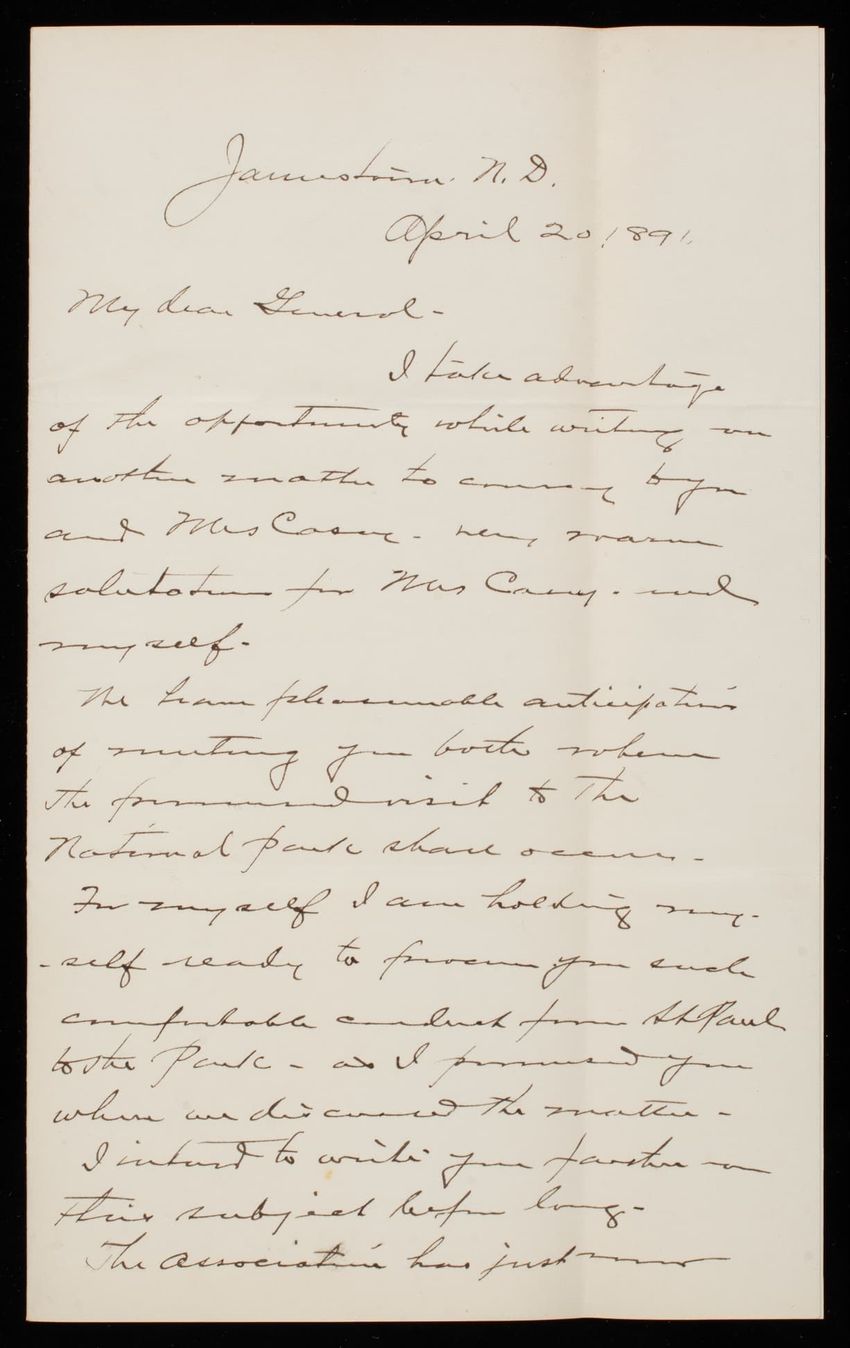 Jamestown. N. D.
April 20, 1891.
My dear General -
I take advantage
of the opportunity while writing on
another matter to convey to you
and Mrs Casey - very warm
salutations from Mrs Casey - and
myself -
We have pleasurable anticipations
of meeting you both when
the promised visit to the
National Park shall occur -
For myself I am holding my-
- self ready to procure you such
comfortable conduct from St Paul
to the Park - as I promised you
when we discussed the matter -
I intend to write you further on
this subject before long -
The association has just now